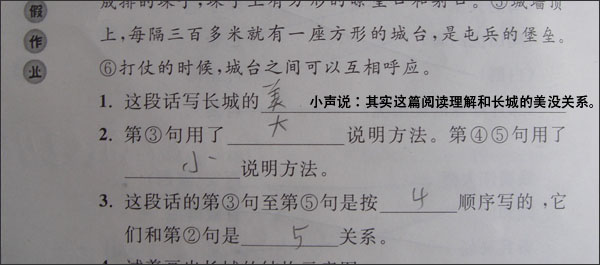 假
作
业
成排的垛子,垛子上有方形的瞭望口和射口。⑤城墙顶
上,每隔三百多米就有一座方形的城台,是屯兵的堡垒。
⑥打仗的时候,城台之间可以互相呼应。
1. 这段话写长城的美
小声说:其实这篇阅读理解和长城的美没关系。
2. 第③句用了大说明方法。第④⑤句用了
小说明方法。
3. 这段话的第③句至第⑤句是按4顺序写的,它
们和第②句是5关系。